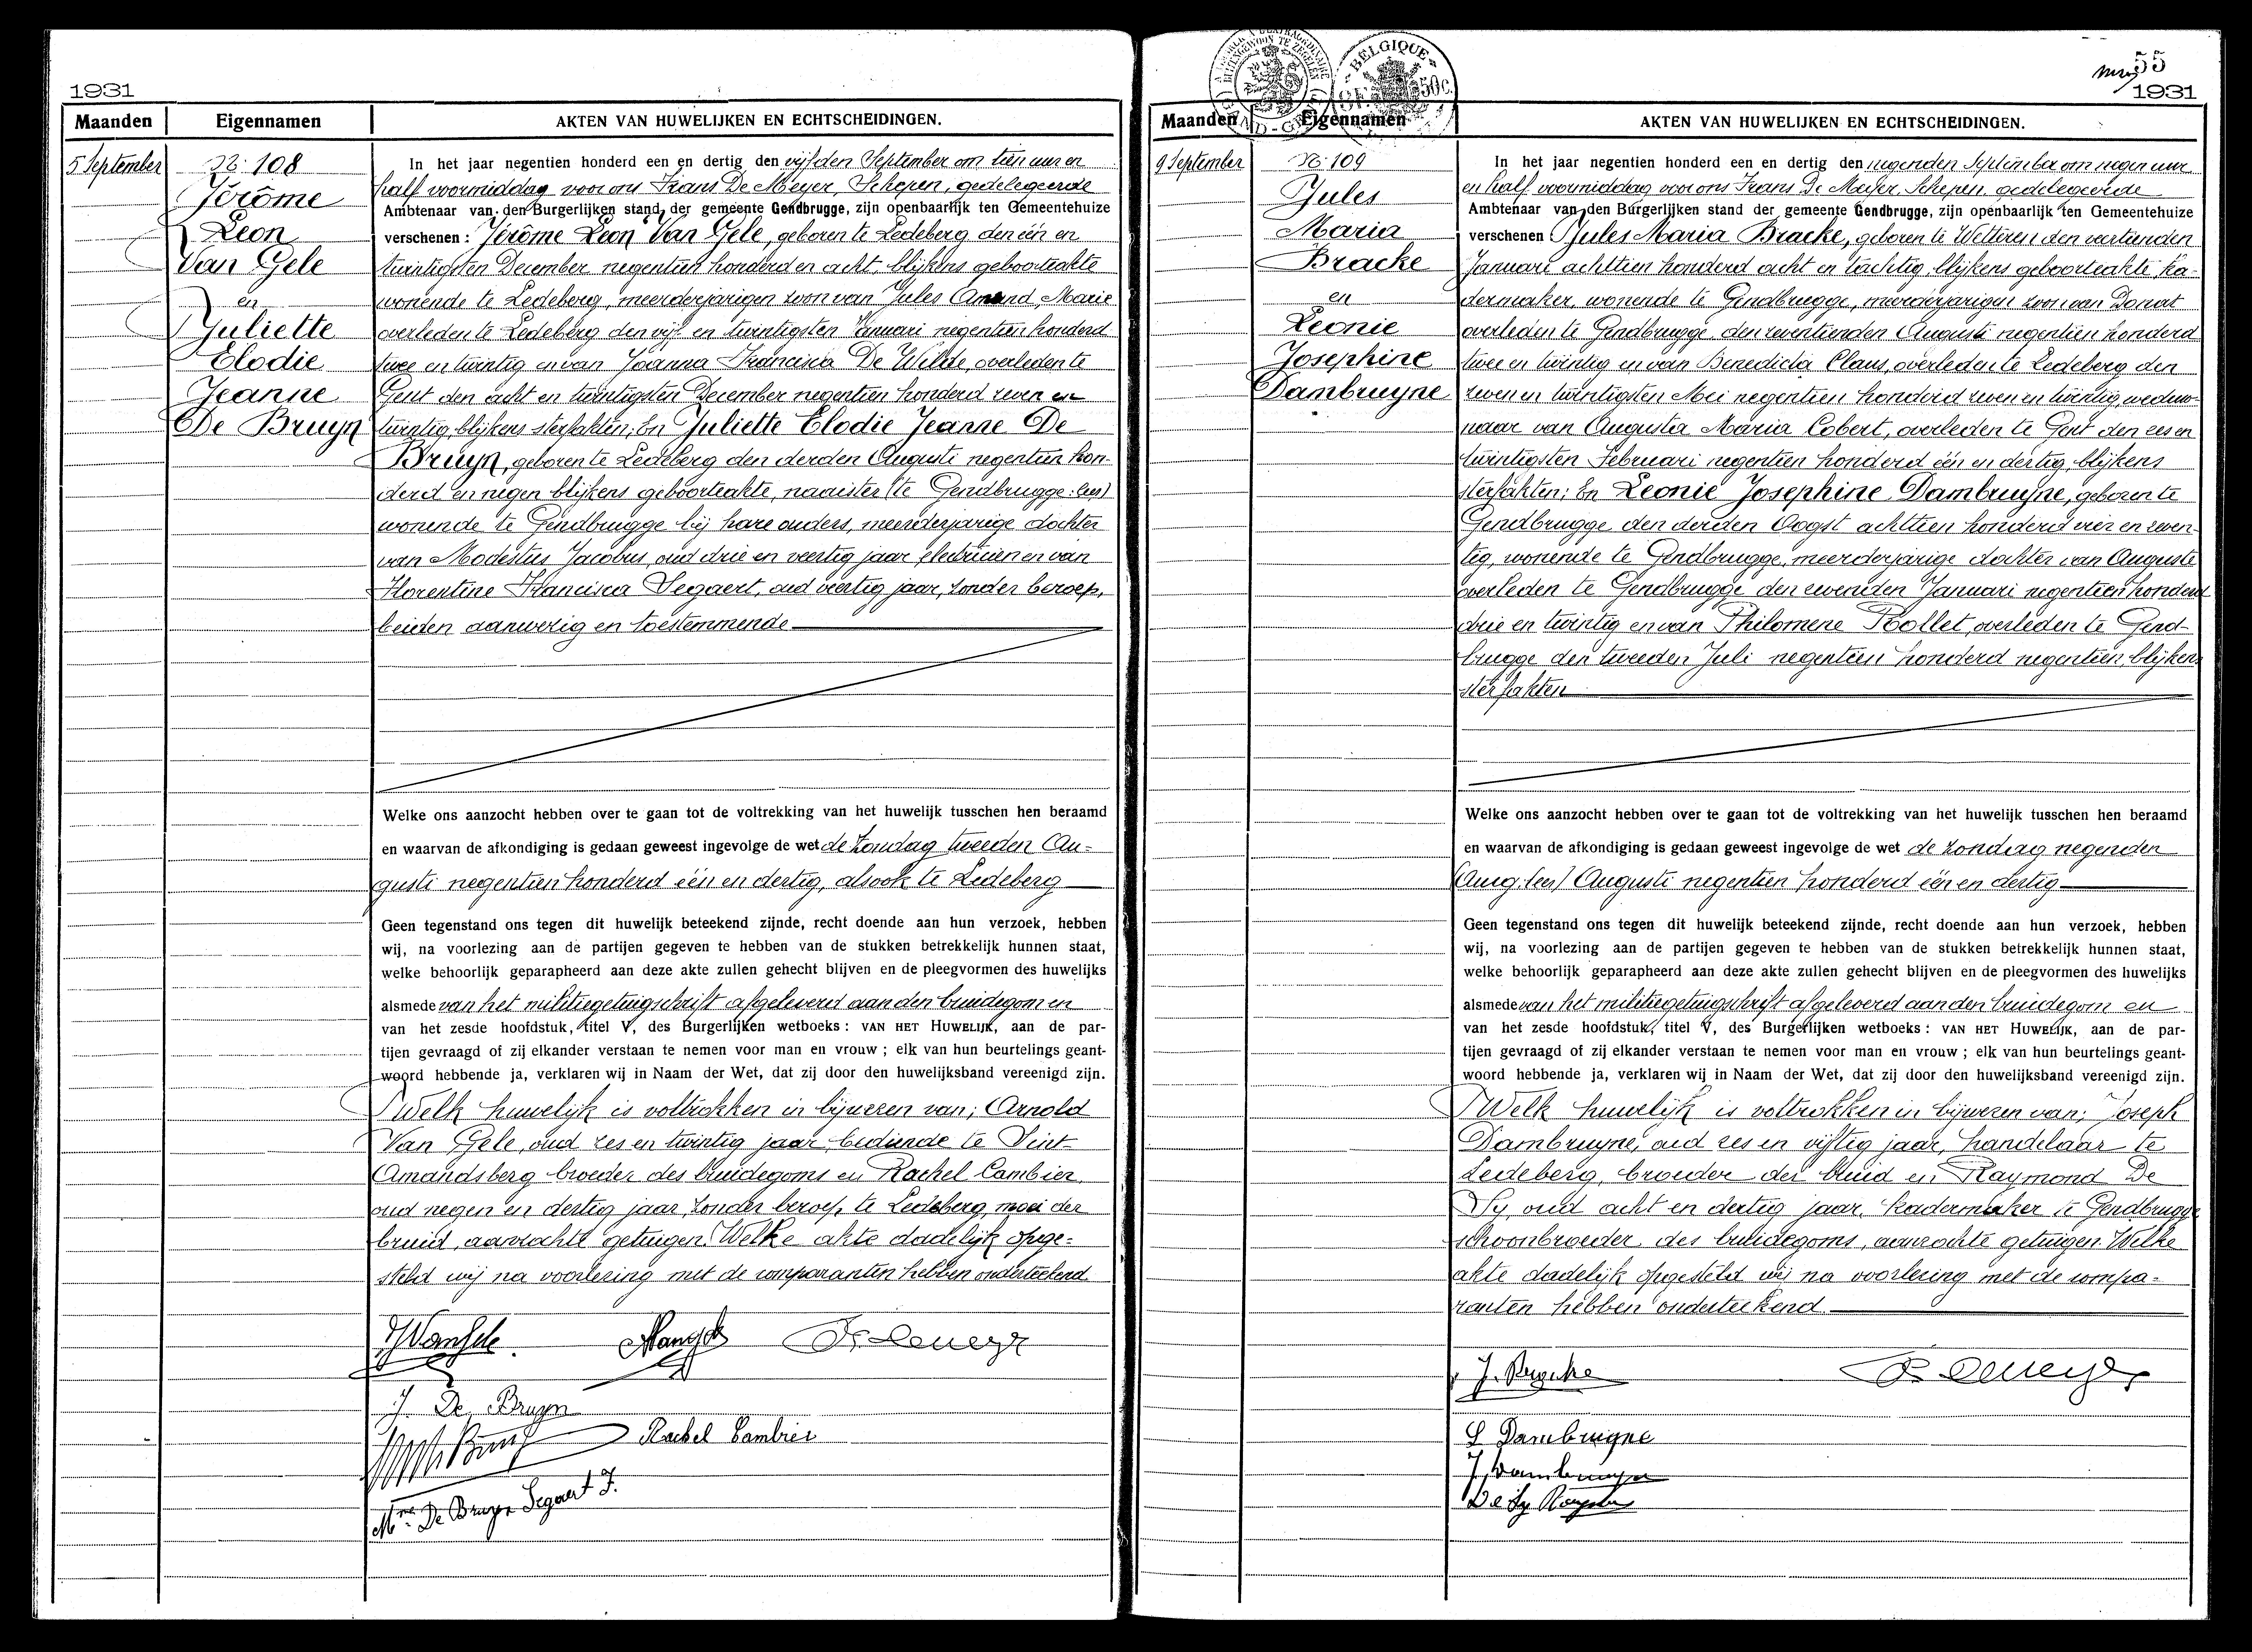 1931
Maanden Eigennamen AKTEN VAN HUWELIJKEN EN ECHTSCHEIDINGEN.
5 September
N: 108
Jérôme
Leon
Van Gele
en
Juliette
Elodie
Jeanne
De Bruyn
In het jaar negentien honderd een en dertig den vijfden September om tien uur en
half voormiddag voor ons Frans De Meyer, Schepen, gedelegeerde
Ambtenaar van den Burgerlijken stand der gemeente Gendbrugge, zijn openbaarlijk ten Gemeentehuize
verschenen: Jérôme Leon Van Gele, geboren te Ledeberg den één en
twintigsten December negentien honderd en acht, blijkens geboorteakte
wonende te Ledeberg, meerderjarigen zoon van Jules Amand, Marie
overleden te Ledeberg den vijf en twintigsten Januari negentien honderd
twee en twintig en van Joanna Francisca De Wilde, overleden te
Gent den acht en twintigsten December negentien honderd zeven en
twintig, blijkens sterfakten; En Juliette Elodie Jeanne De
Bruyn, geboren te Ledeberg den derden Augusti negentien hon-
derd en negen blijkens geboorteakte, naaister (te Gendbrugge: lees)
wonende te Gendbrugge bij hare ouders, meerderjarige dochter
van Modestus Jacobus, oud drie en veertig jaar, electricien en van
Florentine Francisca Segaert, oud veertig jaar, zonder beroep,
beiden aanwezig en toestemmende
Welke ons aanzocht hebben over te gaan tot de voltrekking van het huwelijk tusschen hen beraamd
en waarvan de afkondiging is gedaan geweest ingevolge de wet de Zondag tweeden Au-
gusti negentien honderd één en dertig, alsook te Ledeberg
Geen tegenstand ons tegen dit huwelijk beteekend zijnde, recht doende aan hun verzoek, hebben
wij, na voorlezing aan de partijen gegeven te hebben van de stukken betrekkelijk hunnen staat,
welke behoorlijk geparapheerd aan deze akte zullen gehecht blijven en de pleegvormen des huwelijks
alsmede van het militiegetuigschrift afgeleverd aan den bruidegom en
van het zesde hoofdstuk, titel V, des Burgerlijken wetboeks: VAN HET HUWELIJK, aan de par-
tijen gevraagd of zij elkander verstaan te nemen voor man en vrouw; elk van hun beurtelings geant-
woord hebbende ja, verklaren wij in Naam der Wet, dat zij door den huwelijksband vereenigd zijn.
Welk huwelijk is voltrokken in bijwezen van; Arnold
Van Gele, oud zes en twintig jaar, bediende te Sint-
Amandsberg broeder des bruidegoms en Rachel Cambier,
oud negen en dertig jaar, zonder beroep, te Ledeberg, moei der
bruid, aanzochte getuigen. Welke akte dadelijk opge-
steld wij na voorlezing met de comparanten hebben onderteekend.
J. De Bruyn
Rachel Cambier
Mme De Bruyn Segaert F.
55
1931
BELGIQUE
Maanden Eigennamen AKTEN VAN HUWELIJKEN EN ECHTSCHEIDINGEN.
9 September
N: 109
Jules
Maria
Bracke
en
Leonie
Josephine
Dambruyne
In het jaar negentien honderd een en dertig den negenden September om negen uur
en half voormiddag voor ons Frans De Meyer, Schepen, gedelegeerde
Ambtenaar van den Burgerlijken stand der gemeente Gendbrugge, zijn openbaarlijk ten Gemeentehuize
verschenen Jules Maria Bracke, geboren te Wetteren den veertienden
Januari achttien honderd acht en tachtig, blijkens geboorteakte, ka-
dermaker, wonende te Gendbrugge, meerderjarigen zoon van Donat
overleden te Gendbrugge, den zeventienden Augusti negentien honderd
twee en twintig en van Benedicta Claus, overleden te Ledeberg den
zeven en twintigsten Mei negentien honderd zeven en twintig, weduw-
naar van Augusta Maria Cobert, overleden te Gent den zes en
twintigsten Februari negentien honderd één en dertig, blijkens
sterfakten; En Leonie Josephine Dambruyne, geboren te
Gendbrugge den derden Oogst achttien honderd vier en zeven-
tig, wonende te Gendbrugge, meerderjarige dochter van Auguste
overleden te Gendbrugge den zevenden Januari negentien honderd
drie en twintig en van Philomene Rollet, overleden te Gend-
brugge den tweeden Juli negentien honderd negentien, blijkens
sterfakten
Welke ons aanzocht hebben over te gaan tot de voltrekking van het huwelijk tusschen hen beraamd
en waarvan de afkondiging is gedaan geweest ingevolge de wet de Zondag negenden
(Aug. lees) Augusti negentien honderd één en dertig
Geen tegenstand ons tegen dit huwelijk beteekend zijnde, recht doende aan hun verzoek, hebben
wij, na voorlezing aan de partijen gegeven te hebben van de stukken betrekkelijk hunnen staat,
welke behoorlijk geparapheerd aan deze akte zullen gehecht blijven en de pleegvormen des huwelijks
alsmede van het militiegetuigschrift afgeleverd aan den bruidegom en
van het zesde hoofdstuk, titel V, des Burgerlijken wetboeks: VAN HET HUWELIJK, aan de par-
tijen gevraagd of zij elkander verstaan te nemen voor man en vrouw; elk van hun beurtelings geant-
woord hebbende ja, verklaren wij in Naam der Wet, dat zij door den huwelijksband vereenigd zijn.
Welk huwelijk is voltrokken in bijwezen van; Joseph
Dambruyne, oud zes en vijftig jaar, handelaar te
Ledeberg, broeder der bruid en Raymond De
Sy, oud acht en dertig jaar, kadermaker te Gendbrugge
schoonbroeder des bruidegoms, aanzochte getuigen. Welke
akte dadelijk opgesteld wij na voorlezing met de compa-
ranten hebben onderteekend.
L Dambruyne
J. Dambruyne